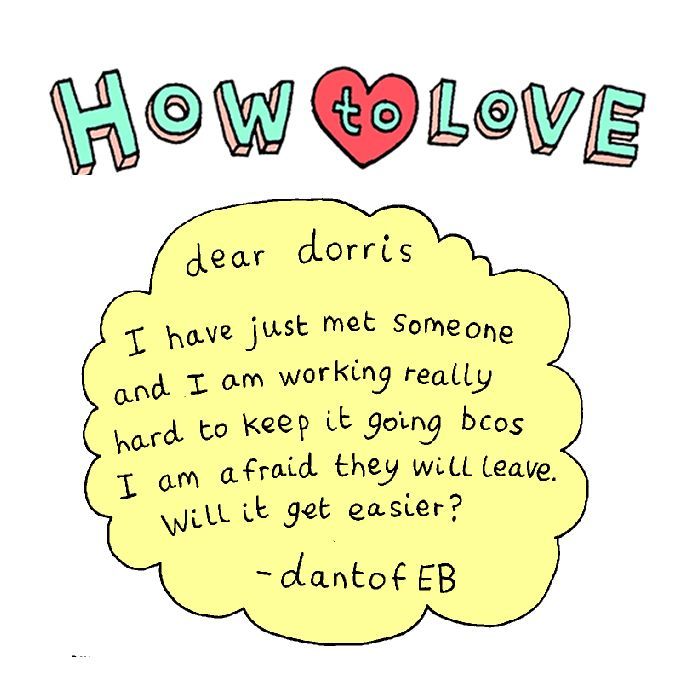 HOW to LOVE
dear dorris
I have just met someone
and I am working really
hard to keep it going bcos
I am afraid they will leave.
Will it get easier?
- dantof EB